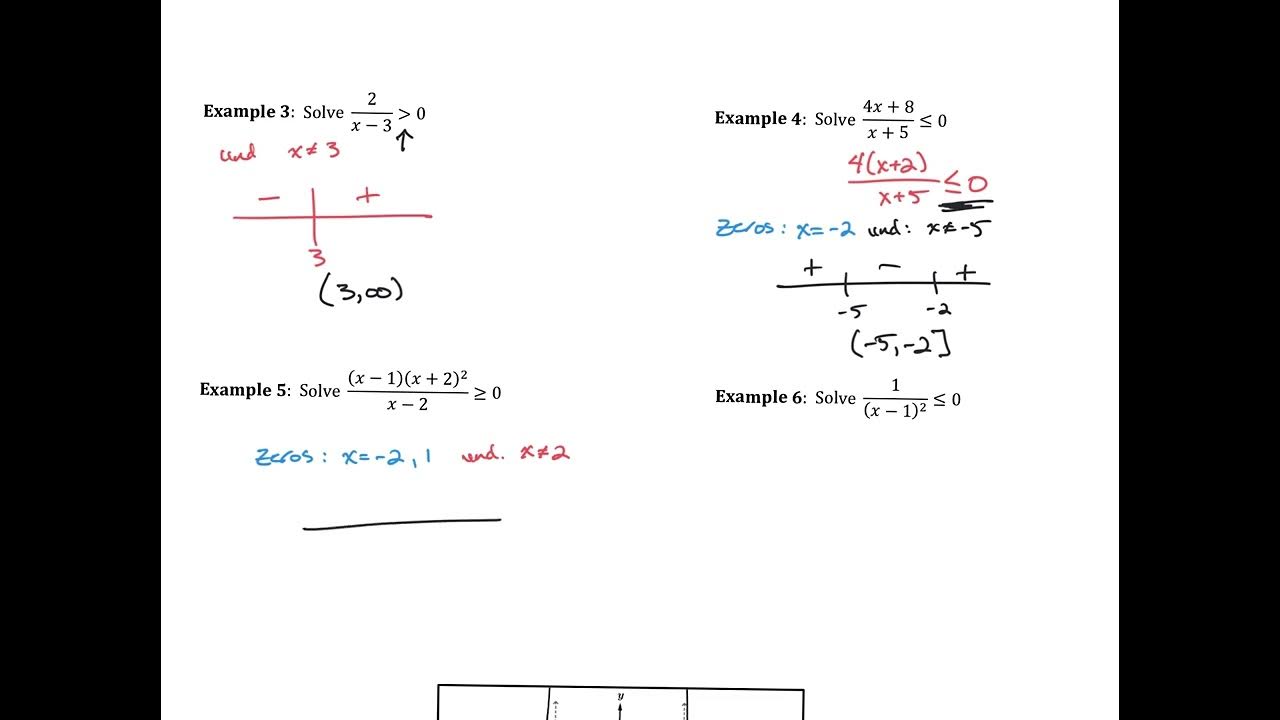 Example 3: Solve 2/(x − 3) > 0
und x ≠ 3
− +
3
(3, ∞)
Example 4: Solve (4x + 8)/(x + 5) ≤ 0
4(x+2)/(x+5) ≤ 0
Zeros: x = -2 und: x ≠ -5
+ − +
-5 -2
(-5, -2]
Example 5: Solve (x − 1)(x + 2)²/(x − 2) ≥ 0
Zeros: x = -2, 1 und. x ≠ 2
Example 6: Solve 1/(x − 1)² ≤ 0
y